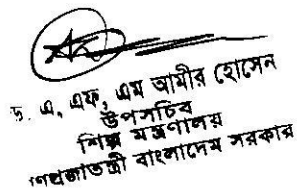 ড. এ, এফ, এম আমীর হোসেন
উপসচিব
শিল্প মন্ত্রণালয়
গণপ্রজাতন্ত্রী বাংলাদেশ সরকার